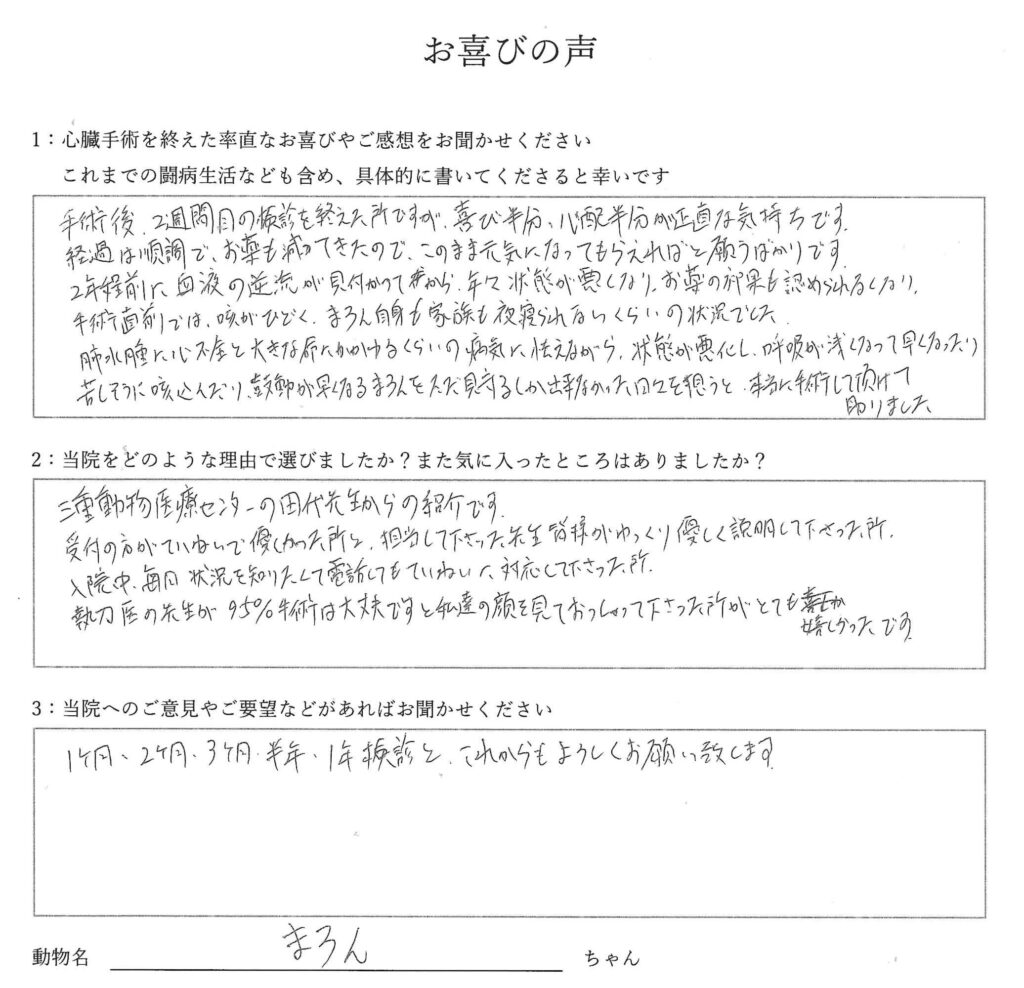 お喜びの声
1：心臓手術を終えた率直なお喜びやご感想をお聞かせください
これまでの闘病生活なども含め、具体的に書いてくださると幸いです
手術後、2週間目の検診を終えた所ですが、喜び半分、心配半分が正直な気持ちです。
経過は順調で、お薬も減ってきたので、このまま元気になってもらえればと願うばかりです。
2年程前に血液の逆流が見付かってから、年々状態が悪くなり、お薬の効果も認められなくなり、
手術直前では、咳がひどく、まろん自身も家族も夜寝られないくらいの状況でした。
肺水腫に心不全と大きな命にかかわるくらいの病気に怯えながら、状態が悪化し、呼吸が浅くなって早くなったり
苦しそうに咳込んだり、鼓動が早くなるまろんをただ見守るしか出来なかった日々を想うと、本当に手術して頂けて
助りました
2：当院をどのような理由で選びましたか？また気に入ったところはありましたか？
三重動物医療センターの田代先生からの紹介です。
受付の方がていねいで優しかった所と、担当して下さった先生皆様がゆっくり優しく説明して下さった所。
入院中、毎日状況を知りたくて電話してもていねいに対応して下さった所。
執刀医の先生が95%手術は大丈夫ですと私達の顔を見ておっしゃって下さった所がとても
嬉しかったです
3：当院へのご意見やご要望などがあればお聞かせください
1ヶ月、2ヶ月、3ヶ月、半年、1年検診と、これからもよろしくお願い致します。
動物名 まろん ちゃん